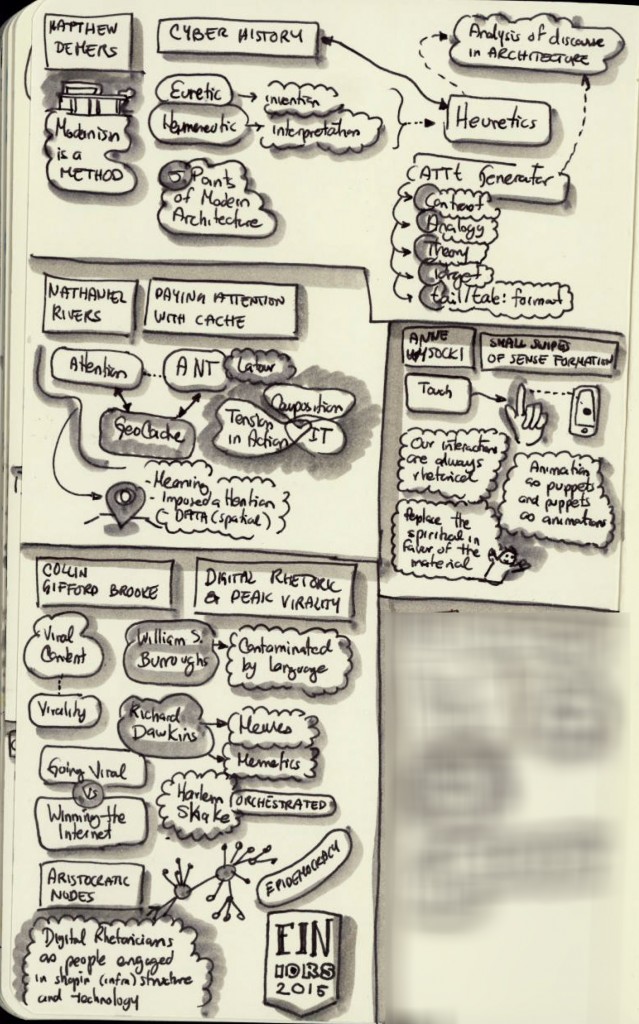 MATTHEW
DEMERS
CYBER HISTORY
Analysis of discourse
in ARCHITECTURE
Modernism
is a
METHOD
Euretic
invention
Hermeneutic
Interpretation
Heuretics
5 Points
of Modern
Architecture
CATTt Generator
Contrast
Analogy
Theory
Target
tail/tale: format
NATHANIEL
RIVERS
PAYING ATTENTION
WITH CACHE
Attention
ANT
Latour
GeoCache
Composition
Tension
in Action
IT
- Meaning
- Imposed attention
DATA (spatial)
ANNE
WYSOCKI
SMALL SWIPES
OF SENSE FORMATION
Touch
Our interactions
are always
rhetorical
Animation
as puppets
and puppets
as animations
Replace the
spiritual in
favor of the
material
COLLIN
GIFFORD BROOKE
DIGITAL RHETORIC
& PEAK VIRALITY
Viral
Content
William S.
Burroughs
Contaminated
by language
Virality
Richard
Dawkins
Memes
Memetics
Going Viral
VS
Winning the
Internet
Harlem
Shake
ORCHESTRATED
ARISTOCRATIC
NODES
EPIDEMOCRACY
Digital Rhetoricians
as people engaged
in shapin (infra)structure
and technology
FIN
IDRS
2015